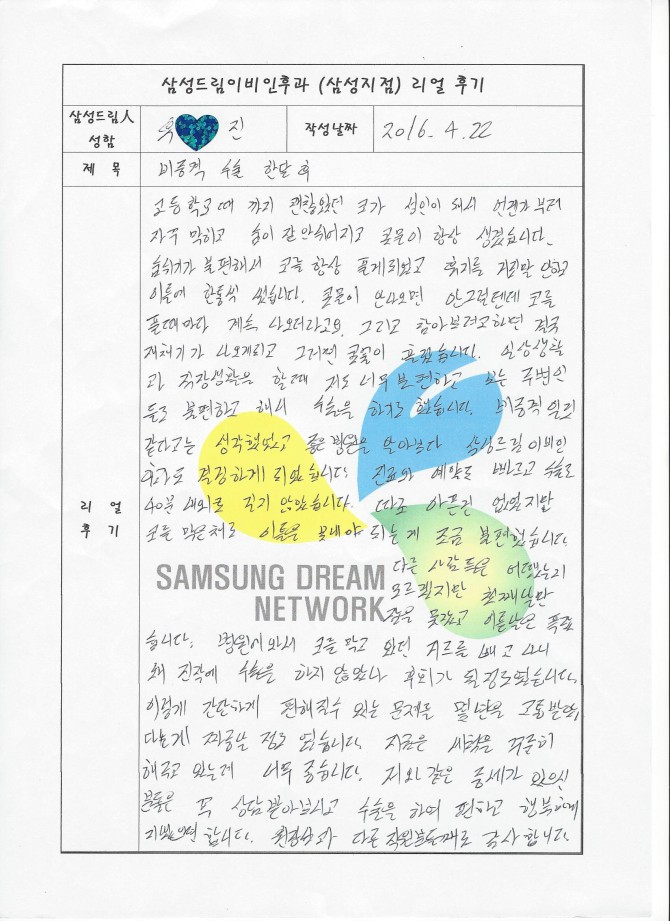 삼성드림이비인후과 (삼성지점) 리얼 후기
삼성드림人 성함
진
작성날짜
2016. 4. 22
제 목
비중격 수술 한달 후
리 얼 후 기
고등학교때 까지 괜찮았던 코가 성인이 돼서 언젠가부터
자꾸 막히고 숨이 잘 안쉬어지고 콧물이 항상 생겼습니다.
숨쉬기가 불편해서 코를 항상 풀게되었고 휴지를 거짓말 안하고
이틀에 한통씩 썼습니다. 콧물이 안나오면 안그럴텐데 코를
풀때마다 계속 나오더라고요. 그리고 참아보려고하면 결국
재채기가 나오게되고 그러면 콧물이 흘렀습니다. 일상생활
과 직장생활을 할때 저도 너무 불편하고 보는 주변인
들도 불편하고 해서 수술을 하기로 했습니다. 비중격
같다고는 생각했었고 좋은 병원을 알아보다 삼성드림이비인
후과로 결정하게 되었습니다. 진료와 예약도 빠르고 수술도
40분 내외로 길지 않았습니다. 따로 아픈건 없었지만
코를 막은채로 이틀을 보내야 되는게 조금 불편했습니다.
다른 사람들은 어땠는지
모르겠지만 첫째날만
잠을 못잤고 이튿날은 푹잤
SAMSUNG DREAM
NETWORK
습니다. 병원에 와서 코를 막고 있던 거즈를 빼고 나니
왜 진작에 수술을 하지 않았나 후회가 될정도였습니다.
이렇게 간단하게 편해질수 있는 문제를 몇년을 고통받았
다는게 짜증날 정도 였습니다. 지금은 세척을 꾸준히
해주고 있는데 너무 좋습니다. 저와 같은 증세가 있으신
분들은 꼭 상담 받아보시고 수술을 하여 편하고 행복하게
지냈으면 합니다. 원장님과 다른 직원분들께도 감사합니다.